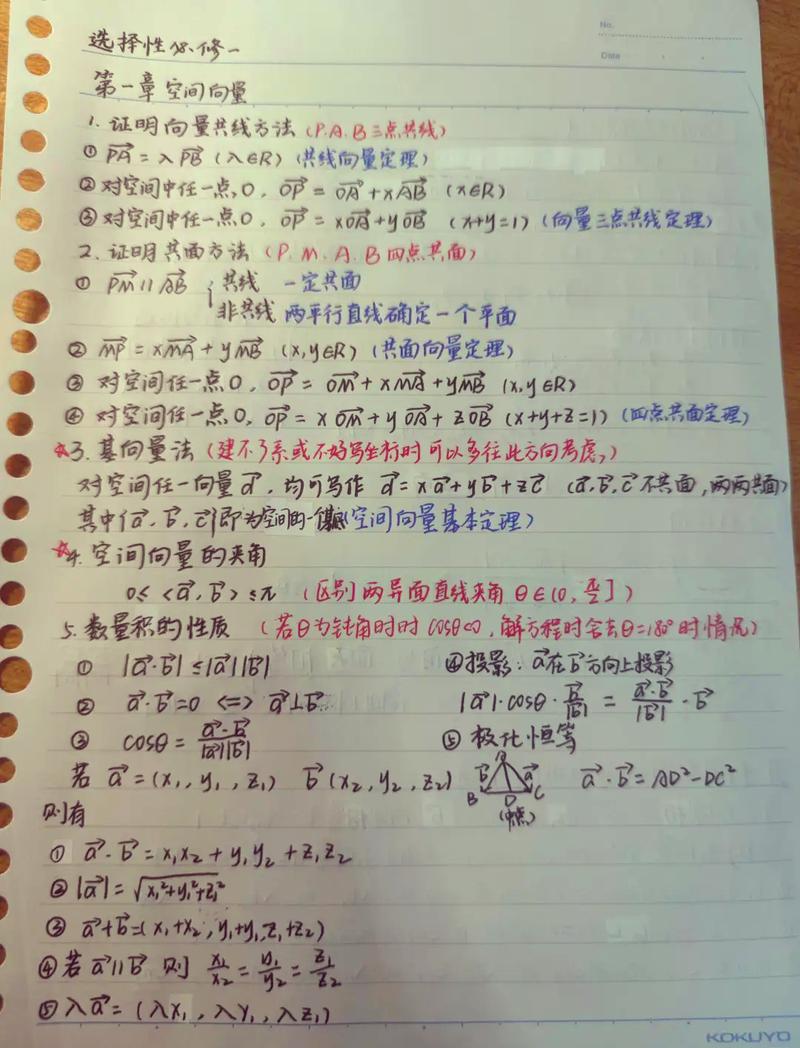 No.
Date
选择性必修一
第一章 空间向量
1. 证明向量共线方法 (P.A.B三点共线)
① PA = λPB (λ∈R) (共线向量定理)
② 对空间中任一点O, OP = OA + xAB (x∈R)
③ 对空间中任一点O, OP = xOA + yOB (x+y=1) (向量三点共线定理)
2. 证明共面方法 (P. M. A. B四点共面)
① PM // AB { 共线 一定共面
非共线 两平行直线确定一个平面
② MP = xMA + yMB (x,y∈R) (共面向量定理)
③ 对空间任一点O, OP = OM + xMA + yMB (x,y∈R)
④ 对空间任一点O, OP = xOM + yOA + zOB (x+y+z=1) (四点共面定理)
☆3. 基向量法 (建不了系或不好写坐标时可以多往此方向考虑,)
对空间任一向量d, 均可写作 d = xa + yb + zc (a,b,c不共面,两两共面)
其中{a,b,c}即为空间的一个基底(空间向量基本定理)
☆4. 空间向量的夹角
0≤<a,b>≤π (区别两异面直线夹角θ∈(0, π/2])
5. 数量积的性质 (若θ为钝角时时cosθ<0, 解方程时舍去θ=180°时情况)
① |a·b|≤|a||b| ④ 投影: a在b方向上投影
② a·b=0 <=> a⊥b |a|·cosθ·b/|b| = a·b/|b|·b
③ cosθ = a·b/|a||b| ⑤ 极化恒等
若 a=(x₁, y₁, z₁) b(x₂, y₂, z₂) A b a B D C (中点) a·b = AD²-DC²
则有
① a·b = x₁x₂ + y₁y₂ + z₁z₂
② |a| = √x₁²+y₁²+z₁²
③ a+b=(x₁+x₂, y₁+y₁, z₁+z₂)
④ 若 a//b 则 x₁/x₂ = y₁/y₂ = z₁/z₂
⑤ λa = (λx₁, λy₁, λz₁)
KOKUYO